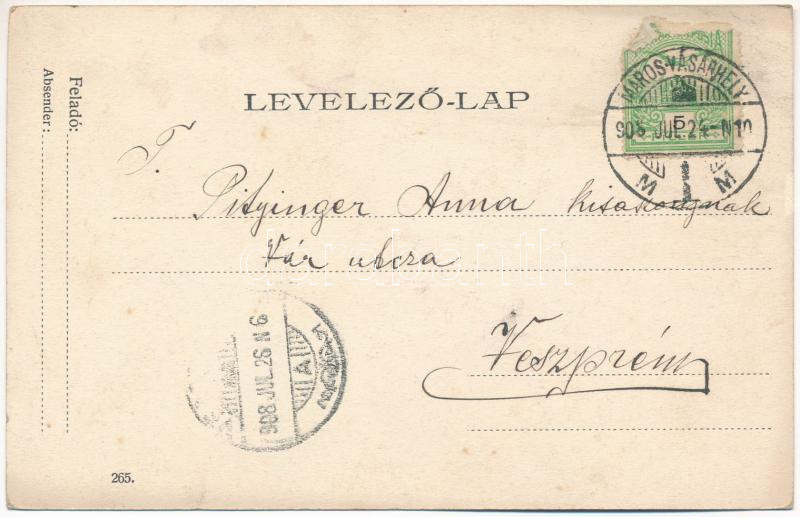 Feladó:
Absender:
LEVELEZŐ-LAP
POSTA
MAROS-VÁSÁRHELY
5
908 JUL.24 N10
M M
T.
Pityinger Anna kisasszonynak
Vár utcza
darabanth
Veszprém
908 JUL.26 N 6
A
265.